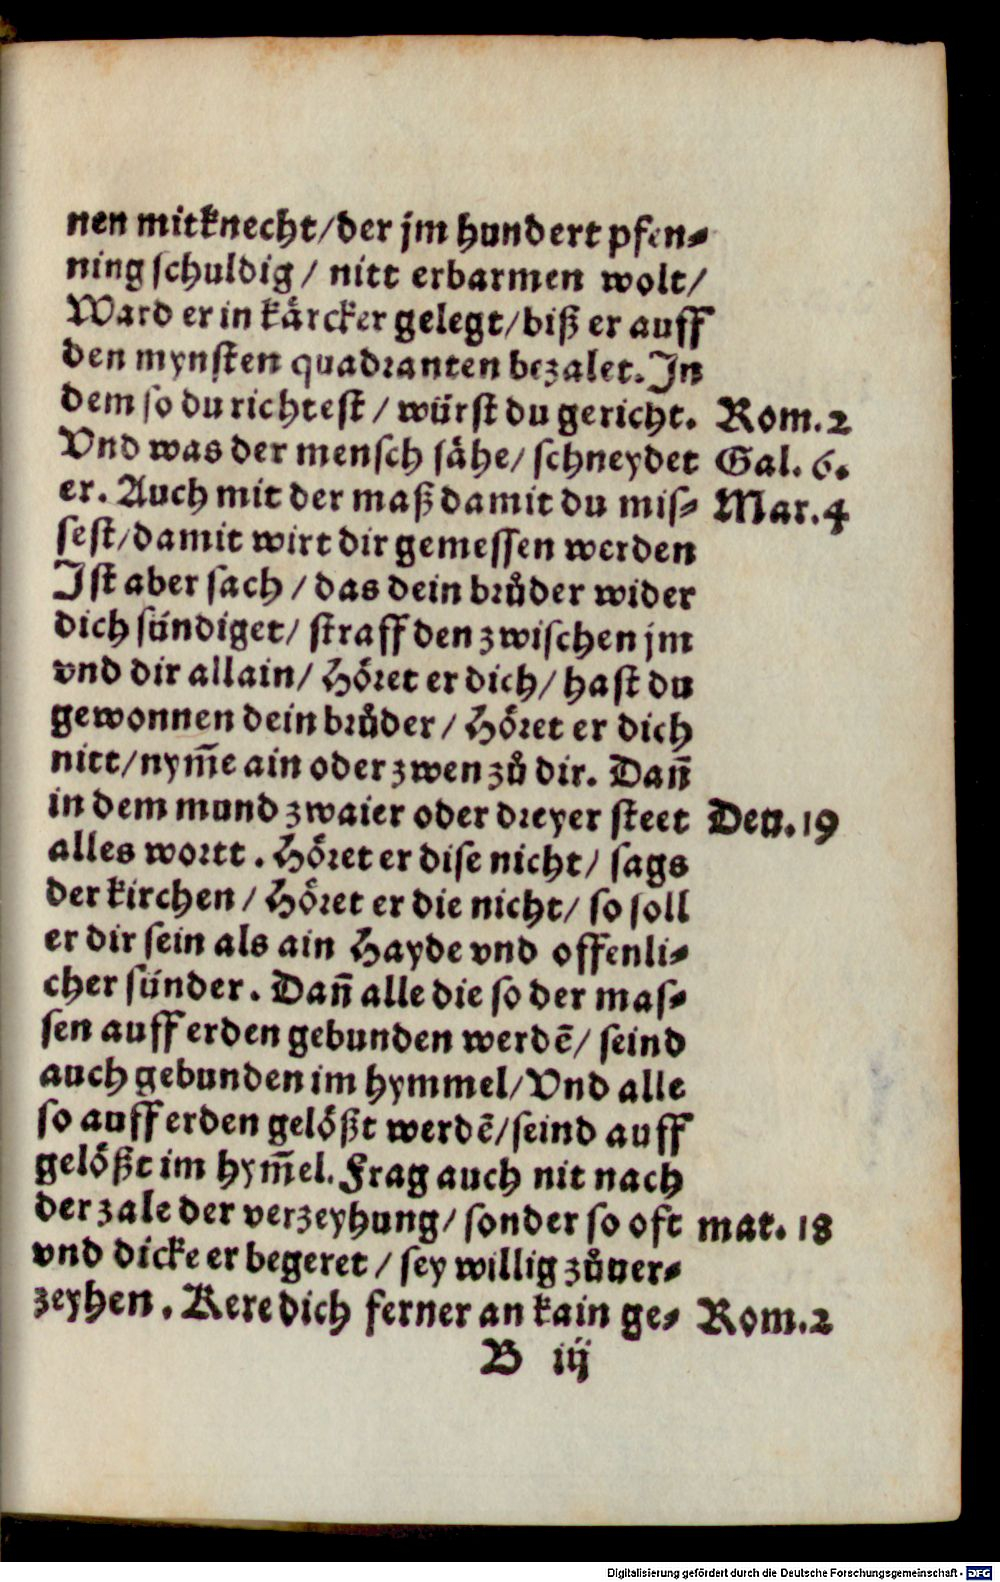 nen mitknecht/der jm hundert pfen⸗
ning schuldig / nitt erbarmen wolt/
Ward er in kårcker gelegt/biß er auff
den mynsten quadranten bezalet. In
dem so du richtest / würst du gericht. Rom. 2
Vnd was der mensch såhe/ schneydet Gal. 6.
er. Auch mit der maß damit du mis⸗ Mar. 4
sest/damit wirt dir gemessen werden
Ist aber sach / das dein brůder wider
dich sündiget/ straff den zwischen jm
vnd dir allain/ Höret er dich/ hast du
gewonnen dein brůder / Höret er dich
nitt/nym̃e ain oder zwen zů dir. Dañ
in dem mund zwaier oder dreyer steet Deu. 19
alles wortt . Höret er dise nicht/ sags
der kirchen / Höret er die nicht/ so soll
er dir sein als ain Hayde vnd offenli⸗
cher sünder. Dañ alle die so der mas⸗
sen auff erden gebunden werdē/ seind
auch gebunden im hymmel/Vnd alle
so auff erden gelößt werdē/seind auff
gelößt im hym̃el. Frag auch nit nach
der zale der verzeyhung/ sonder so oft mat. 18
vnd dicke er begeret / sey willig zůuer⸗
zeyhen. Kere dich ferner an kain ge⸗ Rom. 2
B iij
Digitalisierung gefördert durch die Deutsche Forschungsgemeinschaft - DFG